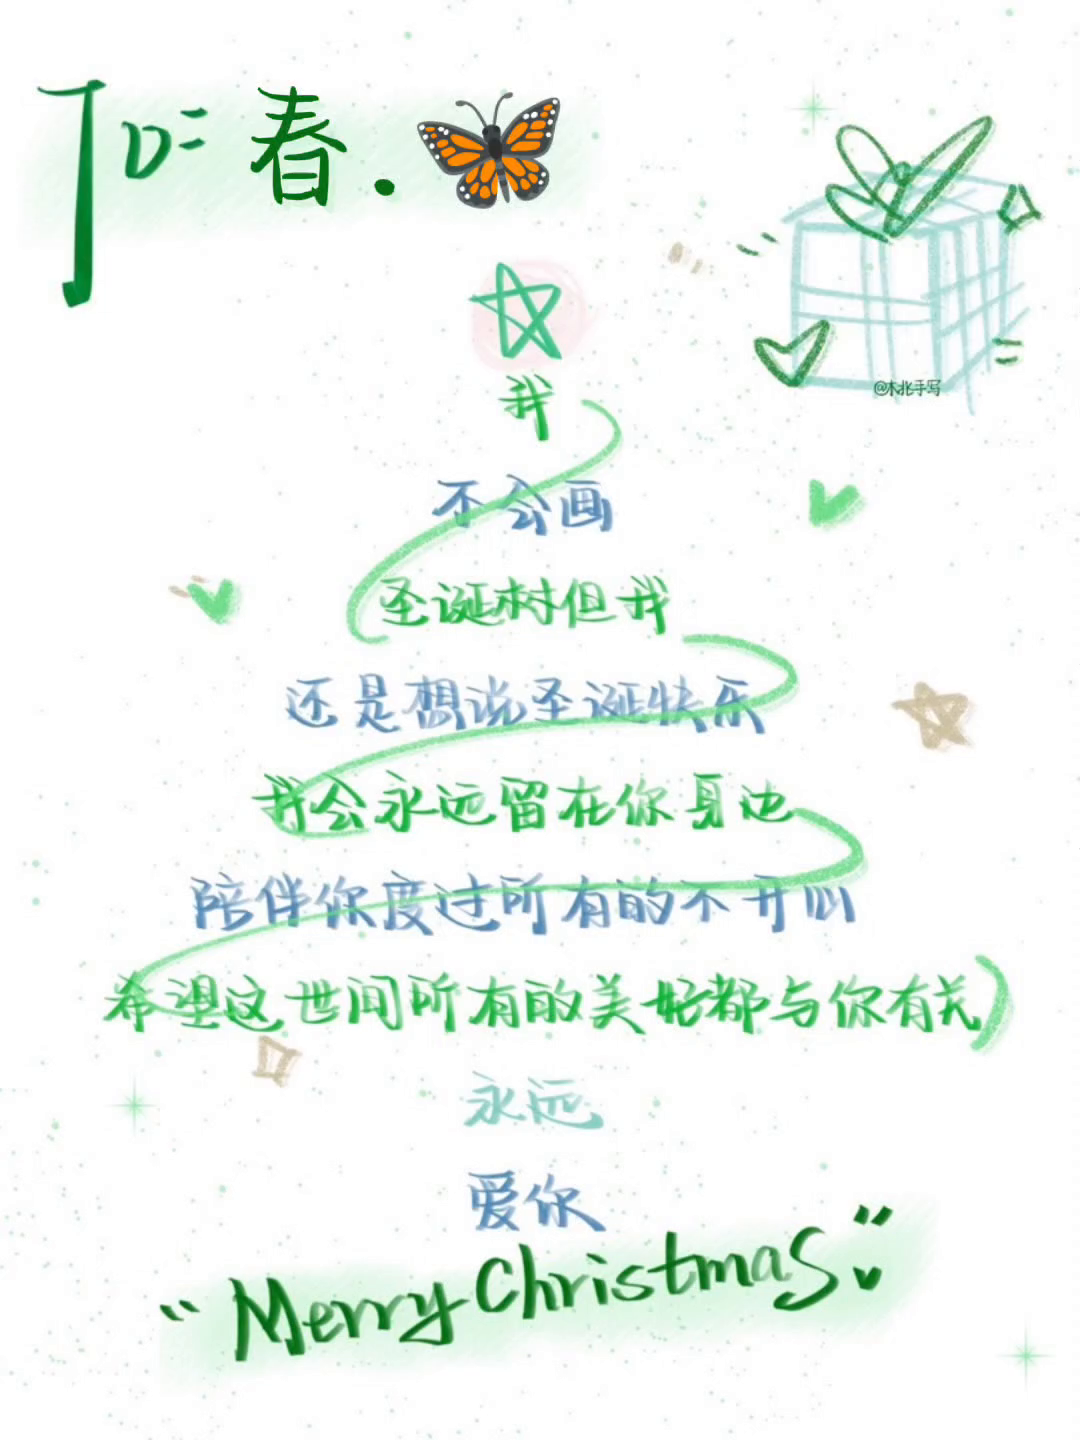 To: 春.
@木北手写
我
不会画
圣诞树但我
还是想说圣诞快乐
我会永远留在你身边
陪伴你度过所有的不开心
希望这世间所有的美好都与你有关
永远
爱你
"Merry Christmas"